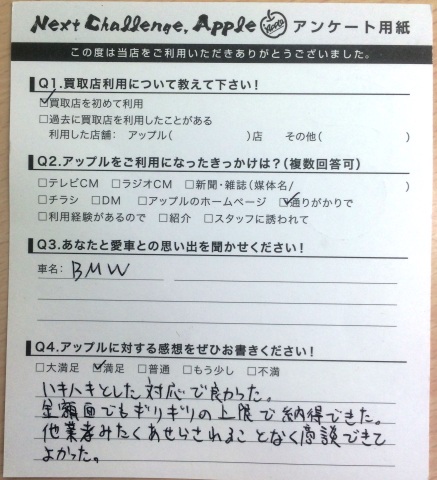 Next Challenge, Apple Apple アンケート用紙
この度は当店をご利用いただきありがとうございました。
Q1.買取店利用について教えて下さい！
☑買取店を初めて利用
□過去に買取店を利用したことがある
利用した店舗： アップル（ ）店 その他（ ）
Q2.アップルをご利用になったきっかけは？（複数回答可）
□テレビCM □ラジオCM □新聞・雑誌（媒体名/ ）
□チラシ □DM □アップルのホームページ ☑通りがかりで
□利用経験があるので □紹介 □スタッフに誘われて
Q3.あなたと愛車との思い出を聞かせください！
車名： BMW
Q4.アップルに対する感想をぜひお書きください！
□大満足 ☑満足 □普通 □もう少し □不満
ハキハキとした対応で良かった。
金額面でもギリギリの上限で納得できた。
他業者みたくあせらされることなく商談できて
よかった。